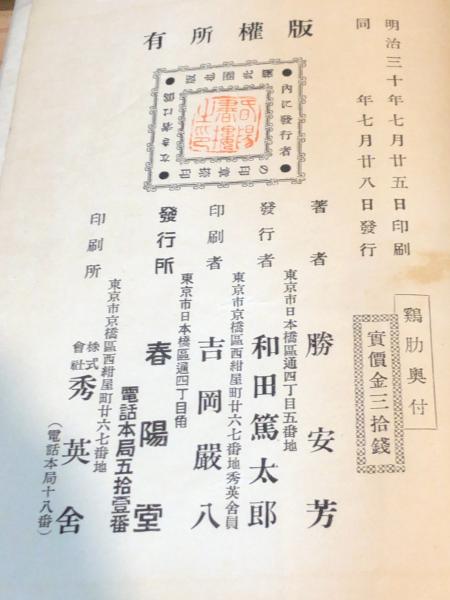 明治三十年七月廿五日印刷
同　年七月廿八日發行
鷄肋奥付
實價金三拾錢
版權所有
内に發行者
の印章捺印
なき者は偽
著者
東京市日本橋區通四丁目五番地
勝安芳
發行者
和田篤太郎
東京市京橋區西紺屋町廿六七番地秀英舍員
印刷者
吉岡嚴八
東京市日本橋區通四丁目角
發行所
春陽堂
電話本局五拾壹番
東京市京橋區西紺屋町廿六七番地
印刷所
株式會社秀英舍
（電話本局十八番）